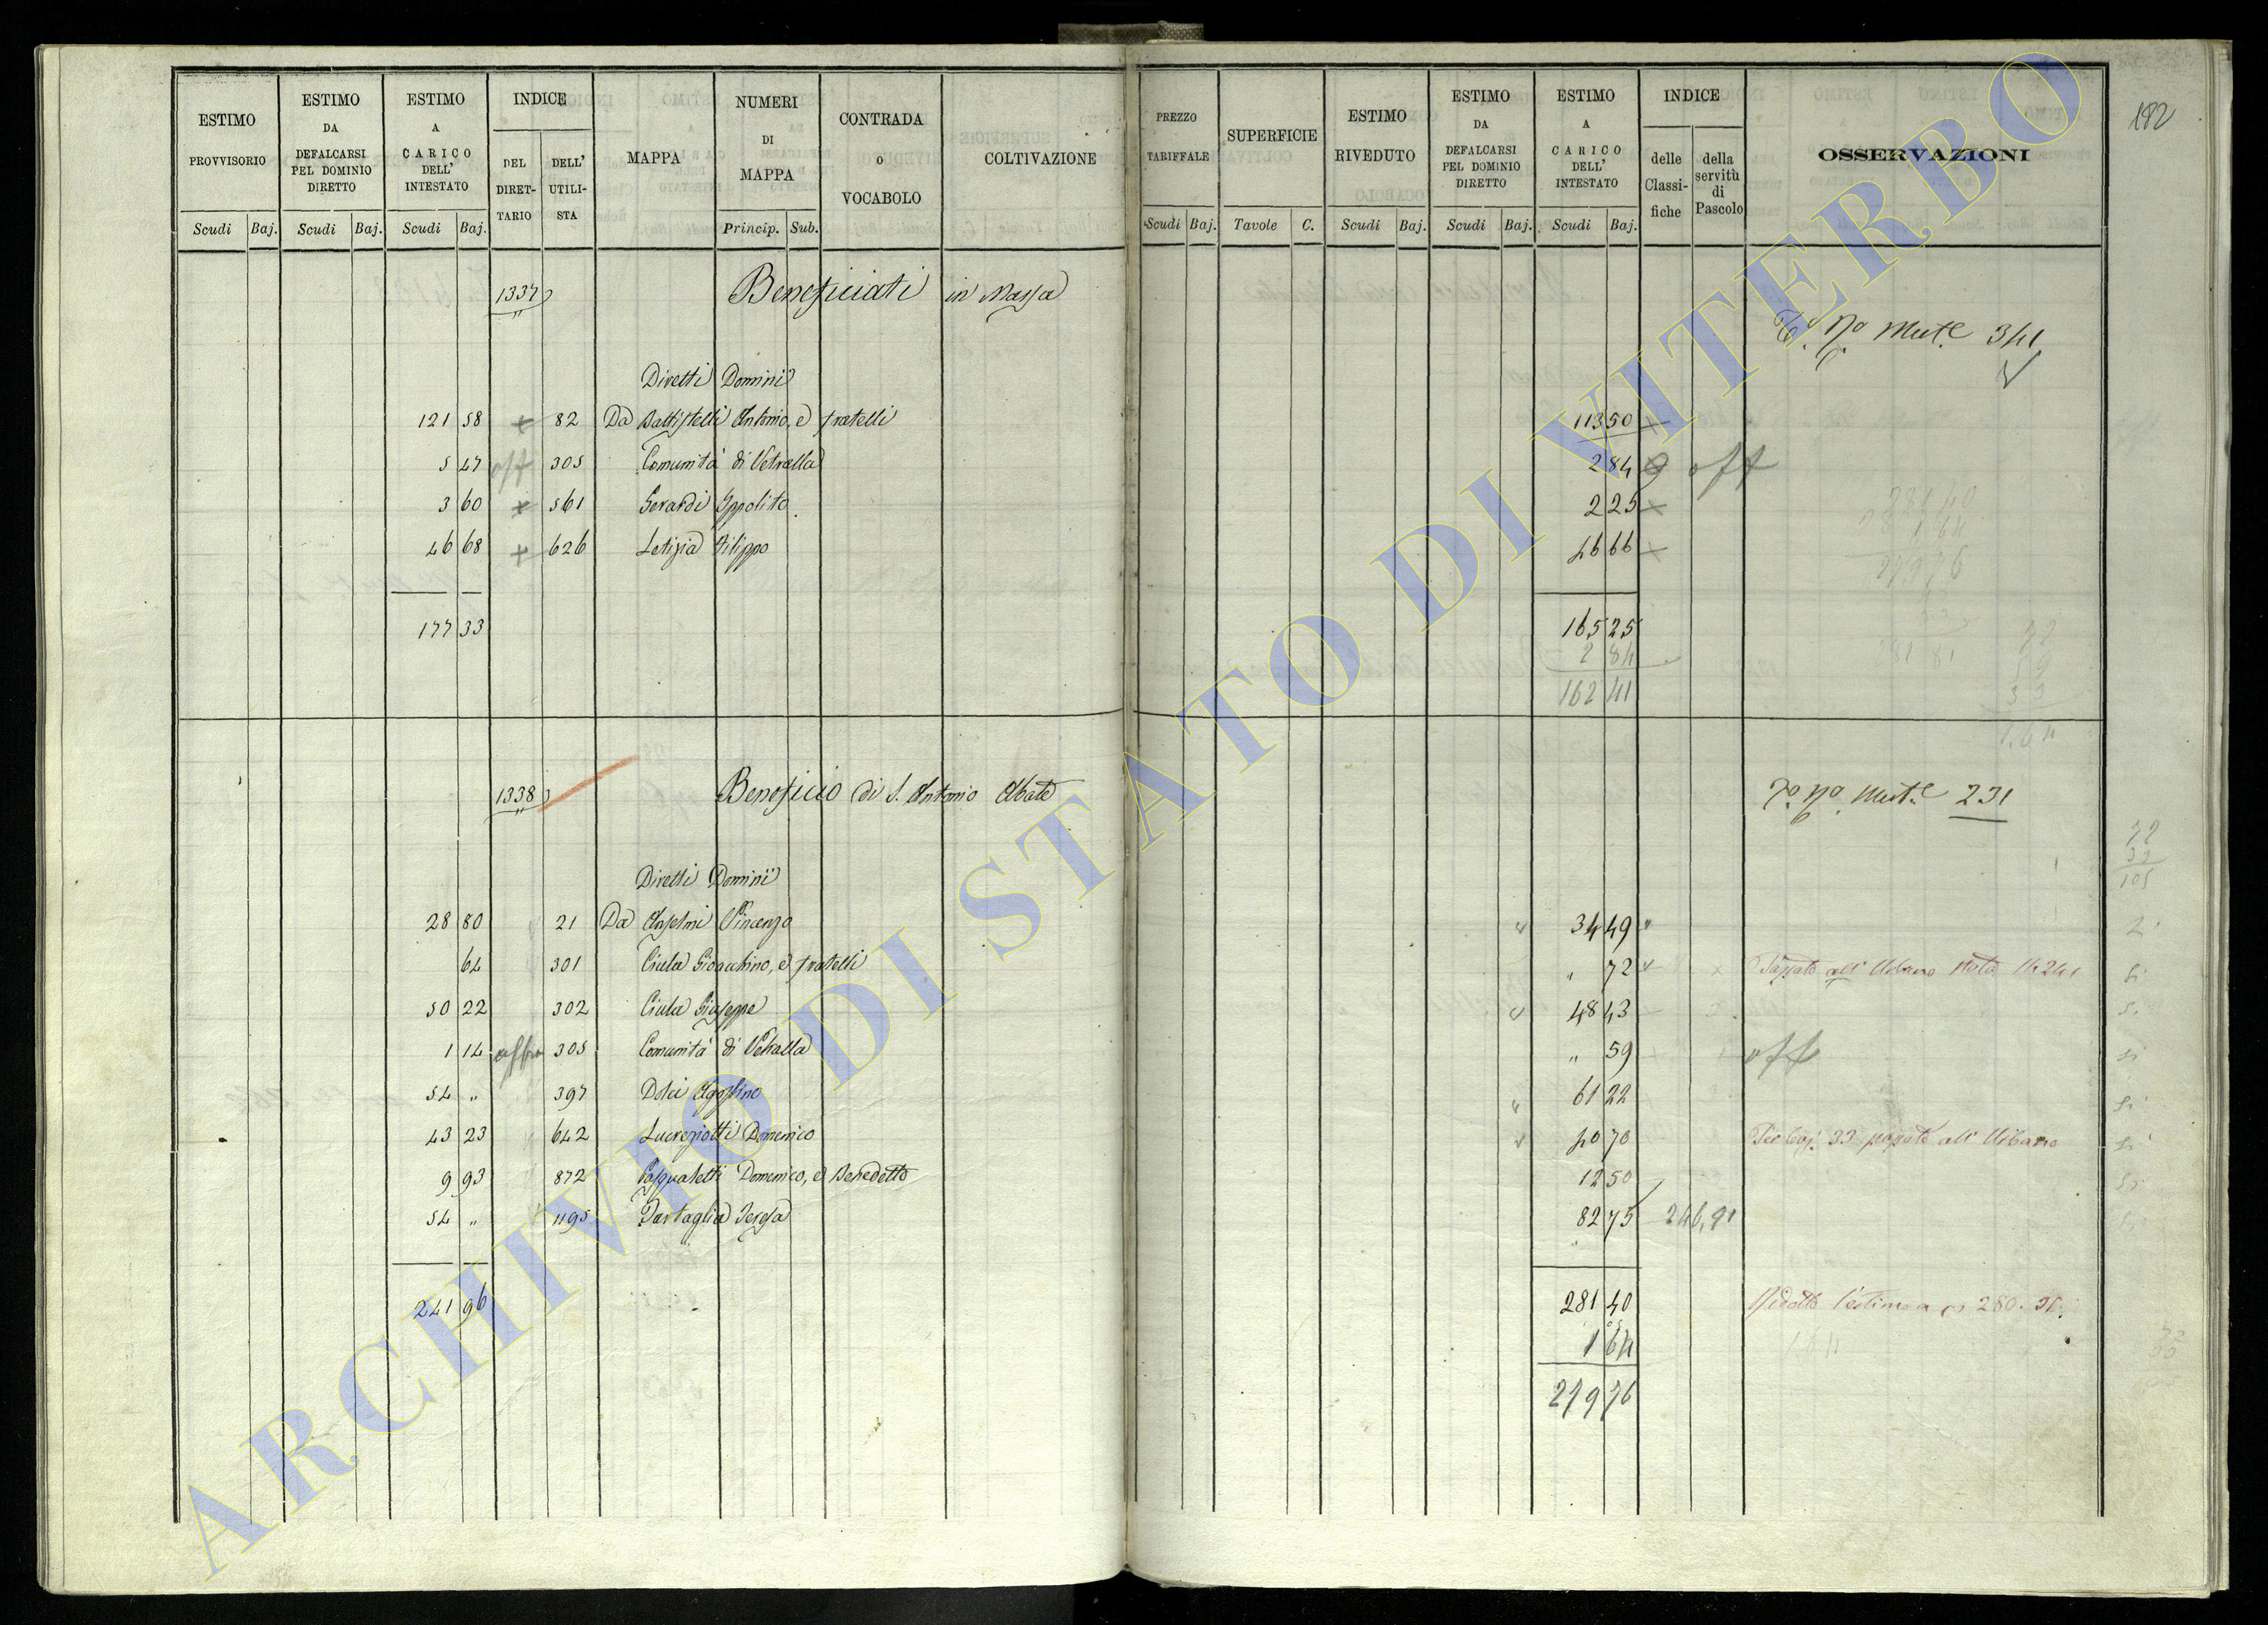 182
ESTIMO PROVVISORIO
ESTIMO DA DEFALCARSI PEL DOMINIO DIRETTO
ESTIMO A CARICO DELL' INTESTATO
INDICE
DEL DIRETTARIO
DELL' UTILISTA
MAPPA
NUMERI DI MAPPA
CONTRADA O VOCABOLO
COLTIVAZIONE
PREZZO TARIFFALE
SUPERFICIE
ESTIMO RIVEDUTO
ESTIMO DA DEFALCARSI PEL DOMINIO DIRETTO
ESTIMO A CARICO DELL' INTESTATO
INDICE
delle Classifiche
della servitù di Pascolo
OSSERVAZIONI
Scudi Baj. Scudi Baj. Scudi Baj. Princip. Sub. Scudi Baj. Tavole C. Scudi Baj. Scudi Baj. Scudi Baj.
1337 Beneficiati in Massa
Mut.e 341
Diretti Dominii
121 58 + 82 Da Battistelli Antonio, e fratelli 113 50 x
5 47 off 305 Comunità di Vetralla 2 84 off
3 60 + 561 Gerardi Ippolito 2 25 x
46 68 + 626 Letizia Filippo 46 66 x
177 33 165 25
2 84
162 41
1338 Beneficio di S. Antonio Abate
Mut.e 231
Diretti Dominii
28 80 21 Da Anselmi Vincenzo 34 49
64 301 Ciula Gioacchino, e fratelli " 72 Passato all' Urbano
50 22 302 Ciula Giuseppe 48 43
1 14 305 Comunità di Vetralla " 59 off
54 " 397 Dolci Agostino 61 22
43 23 642 Lucreziotti Domenico 40 70 Per baj. 33 passato all' Urbano
9 93 872 Pasqualetti Domenico, e Benedetto 12 50
54 " 1195 Tartaglia Teresa 82 75 246,91
241 96 281 40 Ridotto l'estimo a 280.
1 64
279 76
72
33
105
ARCHIVIO DI STATO DI VITERBO